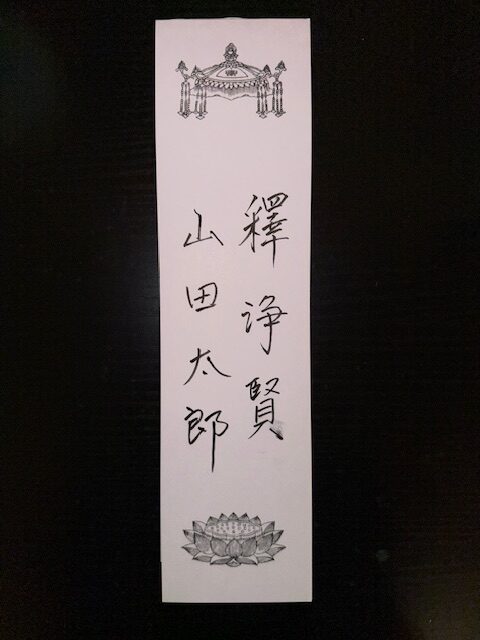 釋浄賢
山田太郎